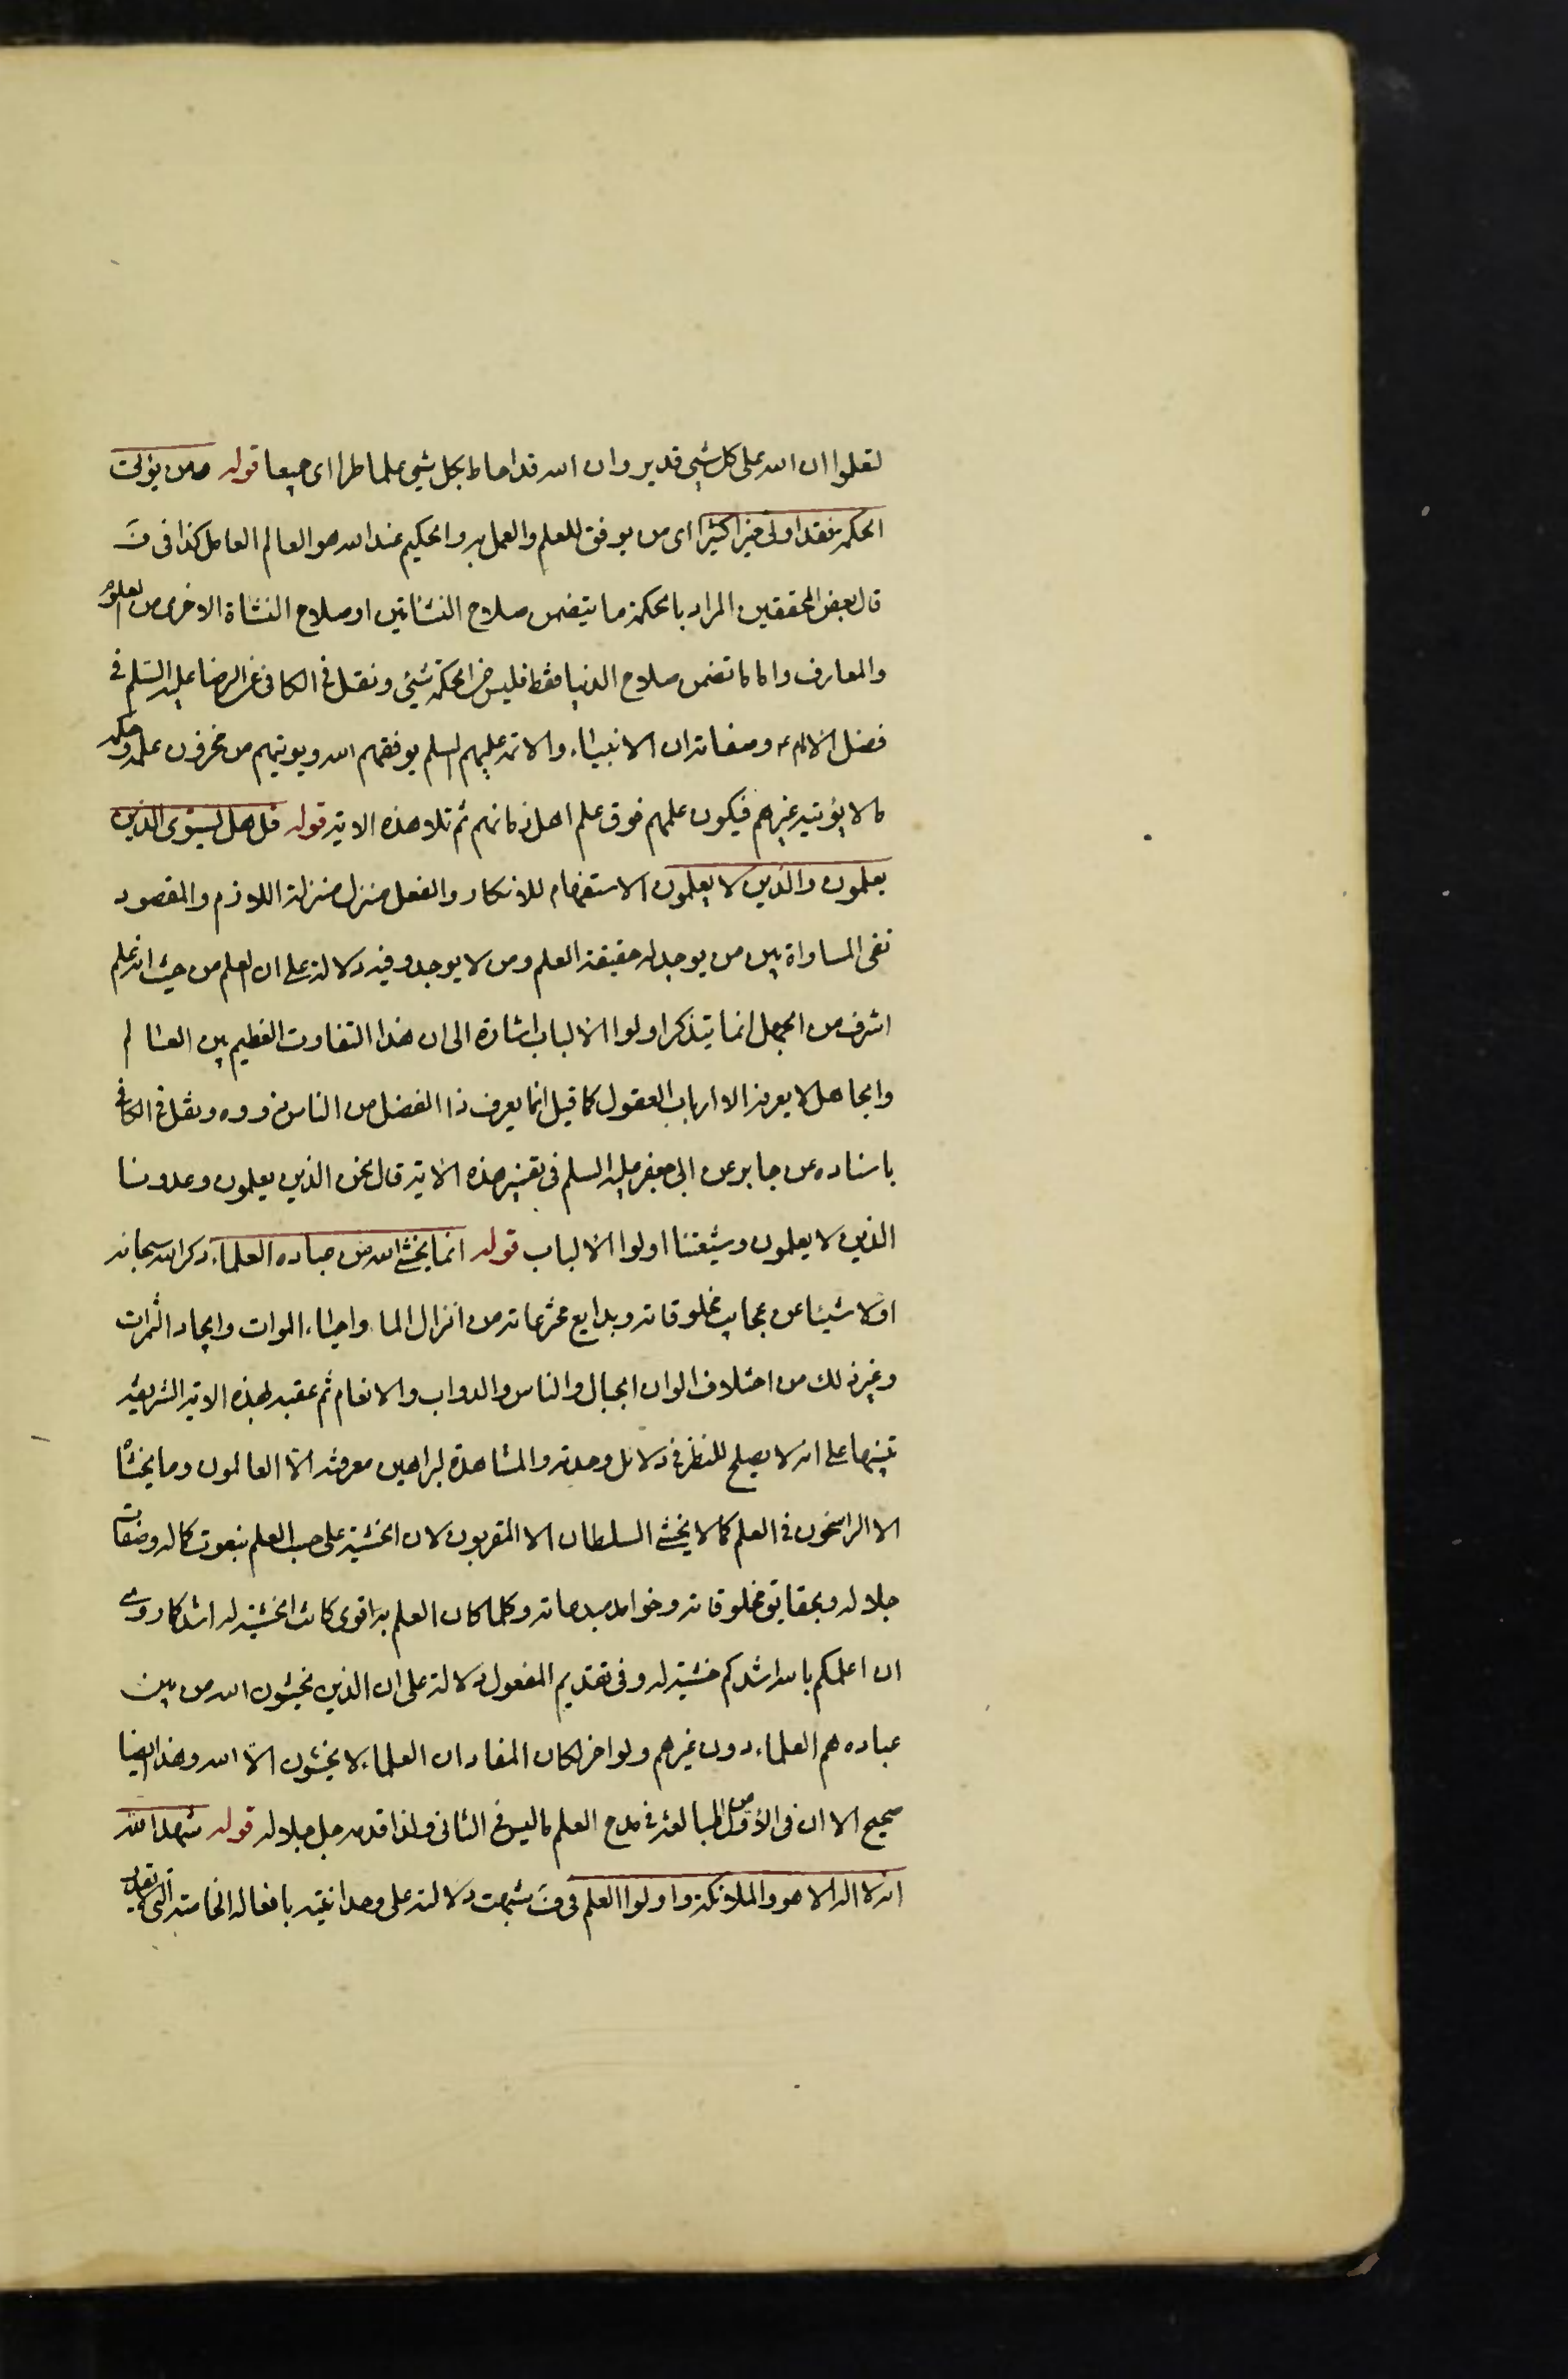 لتعلموا ان الله على كل شئ قدير وان الله قد احاط بكل شئ علما طرا اى جميعا قوله ومن يؤتى
الحكمة فقد اوتى خيرا كثيرا اى من يوفق للعلم والعمل به والحكيم عند الله هو العالم العامل كذا فى ق
قال بعض المحققين المراد بالحكمة ما يتضمن صلاح النشاتين او صلاح النشاة الاخرى من العلوم
والمعارف واما ما تضمن صلاح الدنيا فقط فليس من الحكمة شئ ونقل فى الكافى عن الرضا عليه السلم فى
فضل الامام ع وصفاته ان الانبياء والائمة عليهم السلم يوفقهم الله ويؤتيهم من مخزون علمه وحكمه
ما لا يؤتيه غيرهم فيكون علمهم فوق علم اهل زمانهم ثم تلا هذه الاية قوله قل هل يستوى الذين
يعلمون والذين لا يعلمون الاستفهام للانكار والفعل منزل منزلة اللازم والمقصود
نفى المساواة بين من يوجد له حقيقة العلم ومن لا يوجد وفيه دلالة على ان العلم من حيث انه علم
اشرف من الجهل انما يتذكر اولوا الالباب اشارة الى ان هذا التفاوت العظيم بين العالم
والجاهل لا يعرفه الا ارباب العقول كما قيل انما يعرف ذا الفضل من الناس ذووه ونقل فى الكافى
باسناده عن جابر عن ابى جعفر عليه السلم فى تفسير هذه الاية قال نحن الذين يعلمون وعدونا
الذين لا يعلمون وشيعتنا اولوا الالباب قوله انما يخشى الله من عباده العلماء ذكر الله سبحانه
اولا شيئا من عجايب مخلوقاته وبدايع مخترعاته من انزال الماء واحياء الموات وايجاد الثمرات
وغير ذلك من اختلاف الوان الجبال والناس والدواب والانعام ثم عقبه بهذه الاية الشريفة
تنبيها على انه لا يصلح للنظر فى دلائل وحدته والمشاهدة لبراهين معرفته الا العالمون وما يخشاه
الا الراسخون فى العلم كما لا يخشى السلطان الا المقربون لان الخشية على حسب العلم بنعوت كماله وصفات
جلاله وبحقايق مخلوقاته وخواص مبدعاته وكلما كان العلم به اقوى كانت الخشية له اشد كما روى
ان اعلمكم بالله اشدكم خشية له وفى تقديم المفعول دلالة على ان الذين يخشون الله من بين
عباده هم العلماء دون غيرهم ولو اخر لكان المفاد ان العلماء لا يخشون الا الله وهذا ايضا
صحيح الا ان فى الاول من المبالغة فى مدح العلم ما ليس فى الثانى ولذا قدمه جل جلاله قوله شهد الله
انه لا اله الا هو والملائكة واولوا العلم فى ق شبهت دلالته على وحدانيته بافعاله الخاصة التى